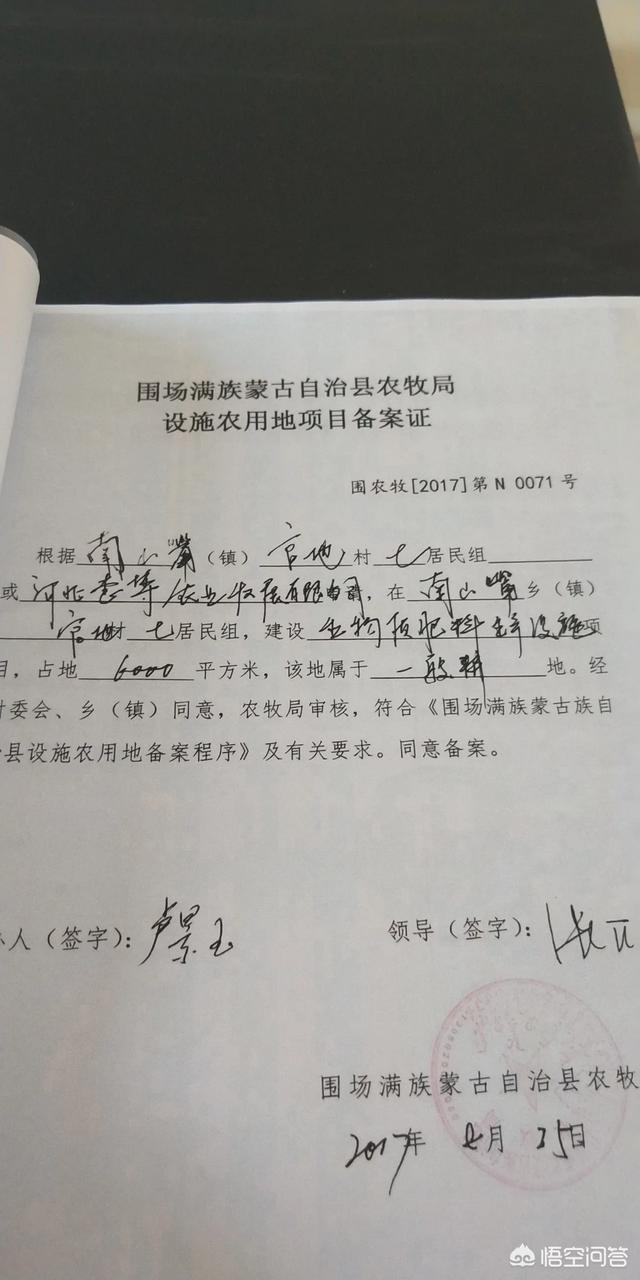 围场满族蒙古自治县农牧局
设施农用地项目备案证
围农牧[2017]第 N 0071 号
根据南山嘴(镇)官地村七居民组
或河北 农业发展有限公司,在南山嘴乡(镇)
官地村七居民组,建设生物质肥料 设施项
目,占地 6000 平方米,该地属于一般耕地。经
村委会、乡(镇)同意,农牧局审核,符合《围场满族蒙古族自
治县设施农用地备案程序》及有关要求。同意备案。
办人(签字):卢景玉 领导(签字):
围场满族蒙古自治县农牧
2017年 七月 25日
悟空问答